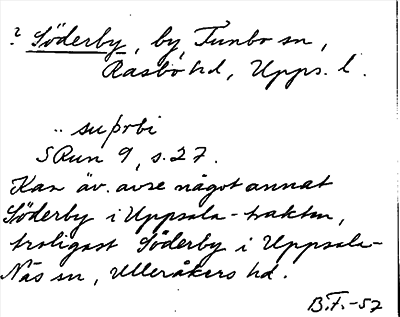 ? Söderby, by, Tunbo sn,
Rasbo hd, Upps. l.
.. suþrbi
SRun 9, s. 27.
Kan äv. avse något annat
Söderby i Uppsala-trakten,
troligast Söderby i Uppsala-
Näs sn, Ulleråkers hd.
B.F.-57